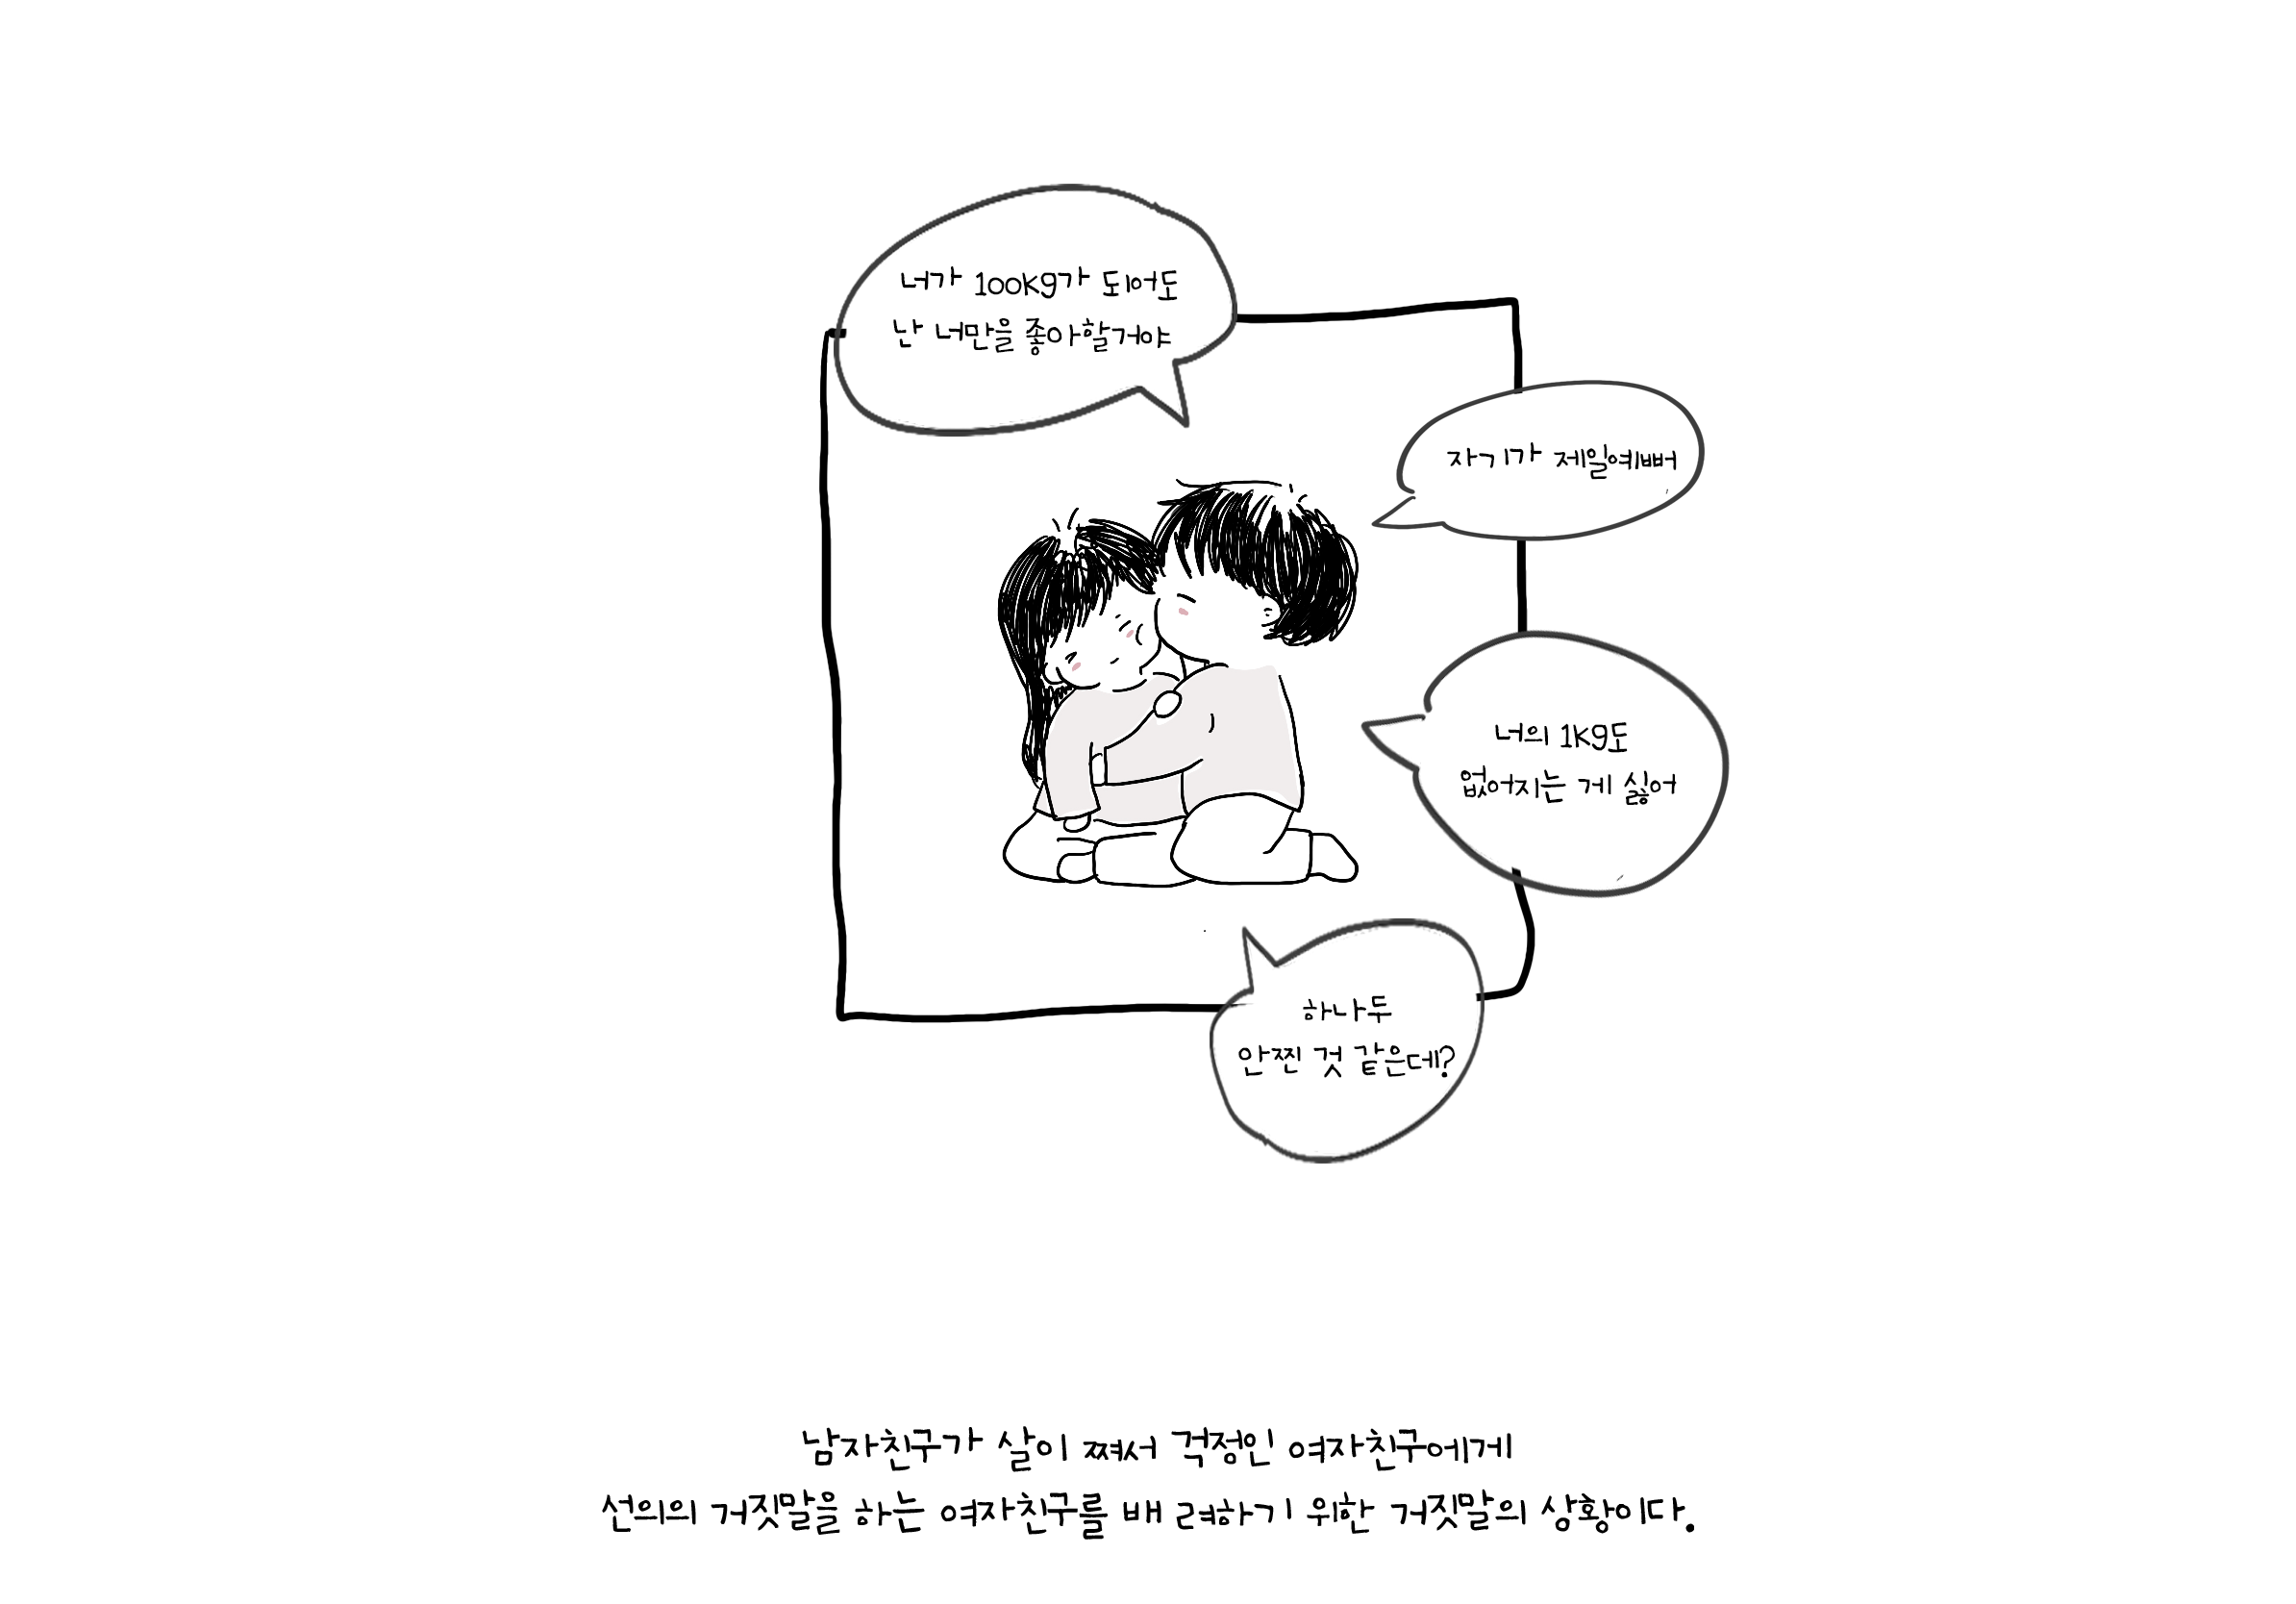 너가 100kg가 되어도
난 너만을 좋아할거야
자기가 제일예뻐
너의 1kg도
없어지는 게 싫어
하나두
안찐 것 같은데?
남자친구가 살이 쪄서 걱정인 여자친구에게
선의의 거짓말을 하는 여자친구를 배 려하기 위한 거짓말의 상황이다.